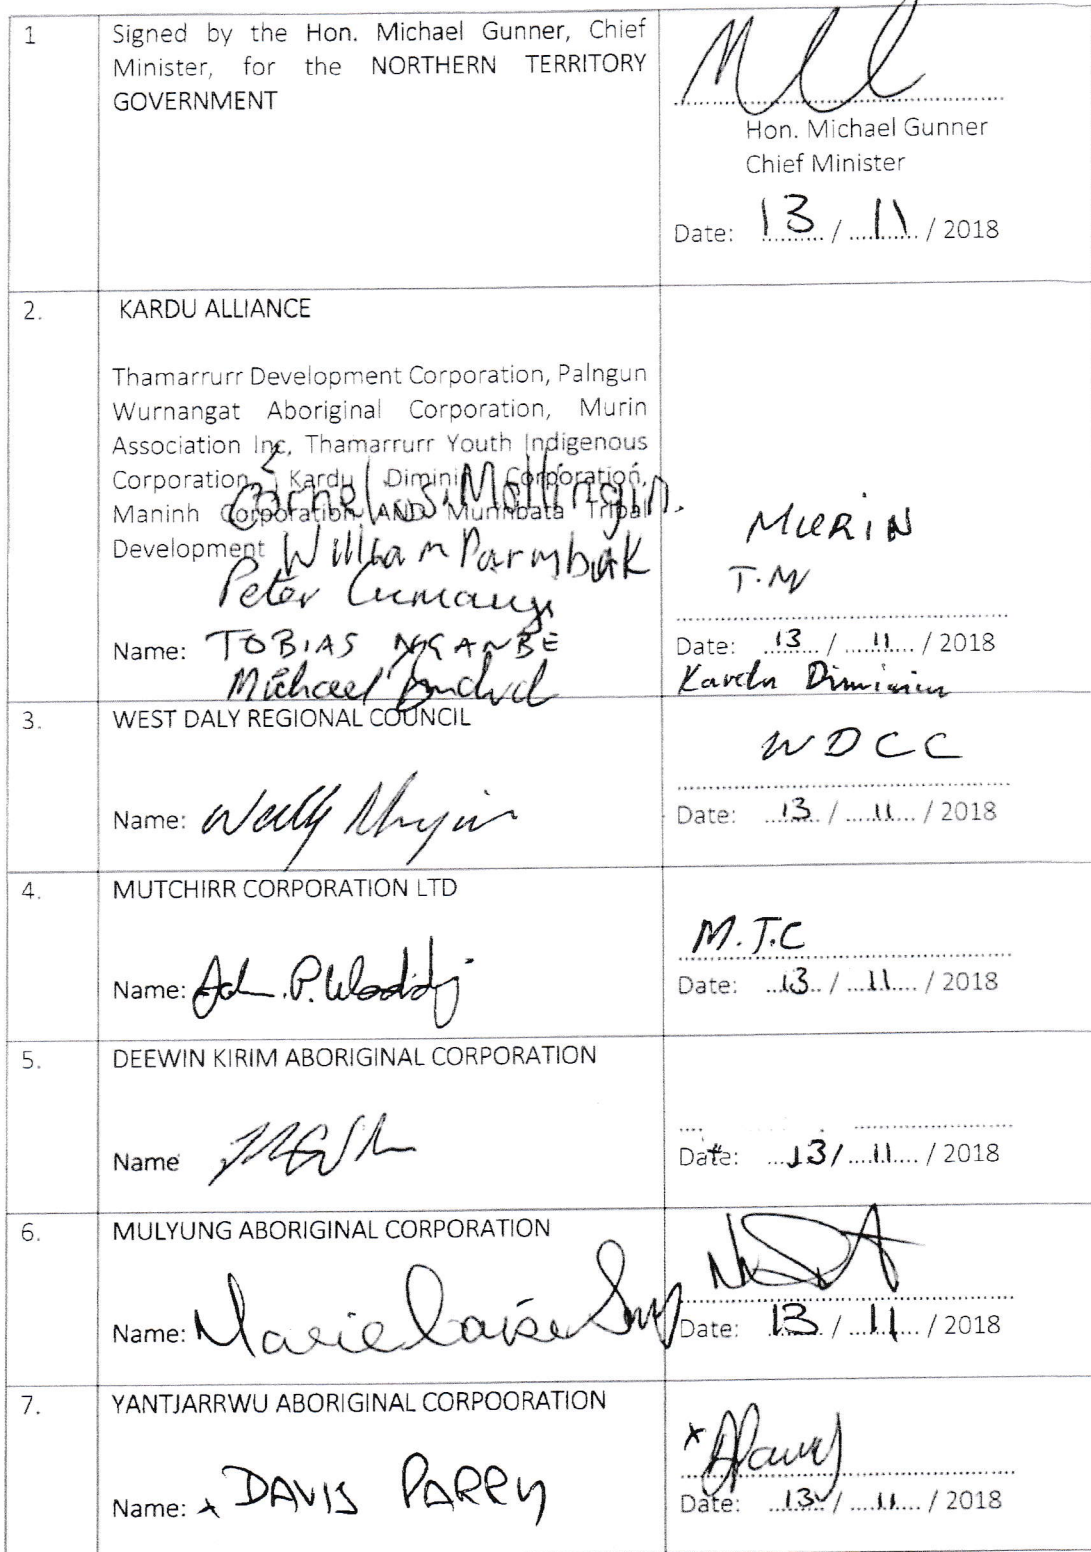 1
Signed by the Hon. Michael Gunner, Chief
Minister, for the NORTHERN TERRITORY
GOVERNMENT
Hon. Michael Gunner
Chief Minister
Date: 13 / 11 / 2018
2.
KARDU ALLIANCE
Thamarrurr Development Corporation, Palngun
Wurnangat Aboriginal Corporation, Murin
Association Inc, Thamarrurr Youth Indigenous
Corporation, Kardu Diminin Corporation,
Maninh Corporation AND Murinbata Tribal
Development
Cornelius Mollingin.
William Parmbuk
Peter
Name: TOBIAS NGANBE
Michael
MURIN
T.M
Date: 13 / 11 / 2018
Kardu Diminin
3.
WEST DALY REGIONAL COUNCIL
Name: Wally
WDCC
Date: 13 / 11 / 2018
4.
MUTCHIRR CORPORATION LTD
Name:
M.T.C
Date: 13 / 11 / 2018
5.
DEEWIN KIRIM ABORIGINAL CORPORATION
Name
Date: 13 / 11 / 2018
6.
MULYUNG ABORIGINAL CORPORATION
Name: Marie Louise
Date: 13 / 11 / 2018
7.
YANTJARRWU ABORIGINAL CORPOORATION
Name: x DAVIS PARRY
x
Date: 13 / 11 / 2018